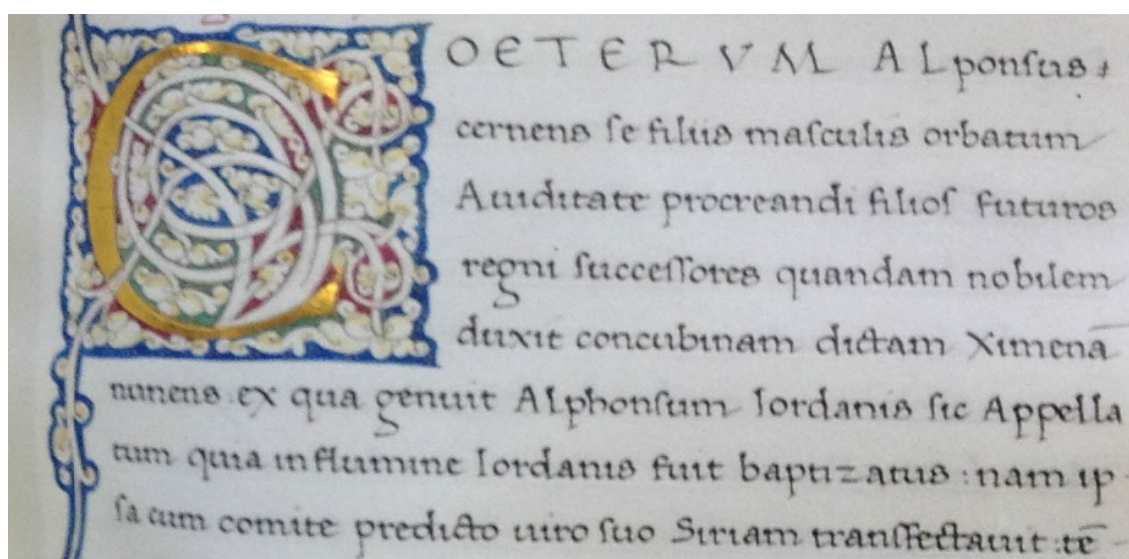 COETERVM ALponſus
cernens ſe filiis maſculis orbatum
Auiditate procreandi filioſ futuros
regni ſucceſſores quandam nobilem
duxit concubinam dictam Ximenā
nunens ex qua genuit Alphonſum Iordanis ſic Appella
tum quia in flumine Iordanis fuit baptizatus : nam ip
ſa cum comite predicto uiro ſuo Siriam tranſfectauit : tē